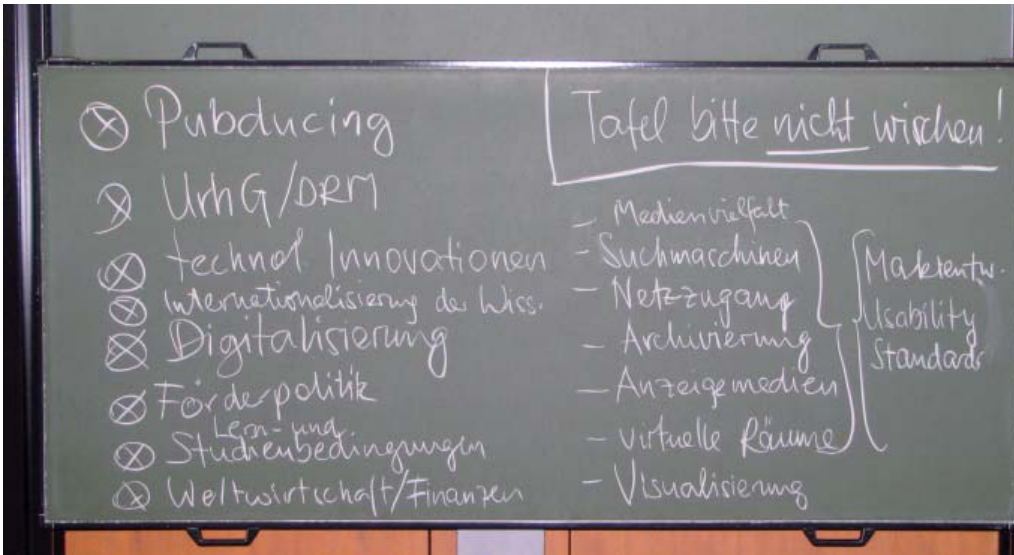 Pubducing
UrhG/DRM
technol. Innovationen
Internationalisierung der Wiss.
Digitalisierung
Förderpolitik
Lern- und
Studienbedingungen
Weltwirtschaft/Finanzen
Tafel bitte nicht wischen!
- Medienvielfalt
- Suchmaschinen
- Netzzugang
- Archivierung
- Anzeigemedien
- virtuelle Räume
- Visualisierung
Marktentw.
Usability
Standards